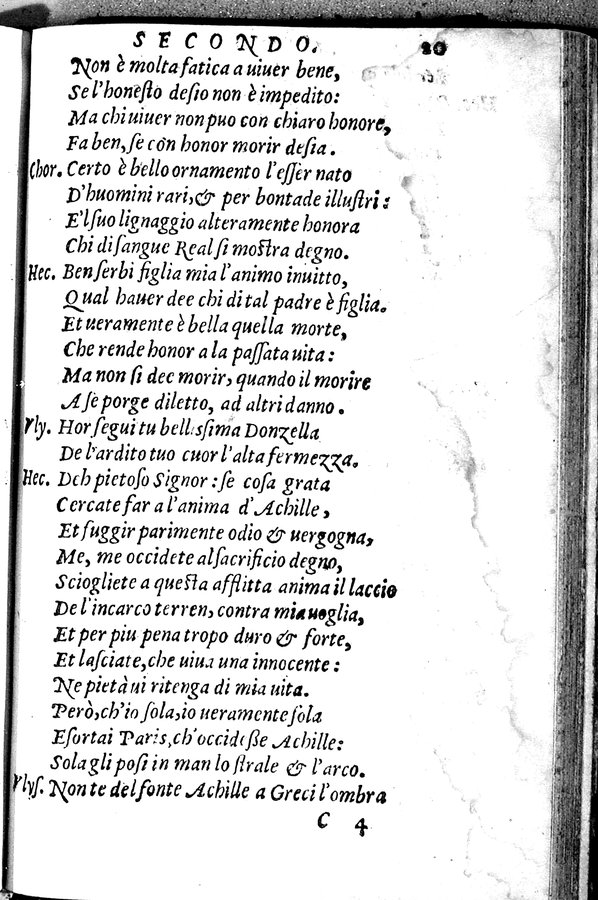 SECONDO. 20
Non è molta fatica a uiuer bene,
Se l'honeſto deſio non è impedito:
Ma chi uiuer non puo con chiaro honore,
Fa ben, ſe con honor morir deſia.
Chor. Certo è bello ornamento l'eſſer nato
D'huomini rari, & per bontade illuſtri:
E'l ſuo lignaggio alteramente honora
Chi di ſangue Real ſi moſtra degno.
Hec. Ben ſerbi figlia mia l'animo inuitto,
Qual hauer dee chi di tal padre è figlia.
Et ueramente è bella quella morte,
Che rende honor a la paſſata uita:
Ma non ſi dee morir, quando il morire
A ſe porge diletto, ad altri danno.
Vly. Hor ſegui tu belliſsima Donzella
De l'ardito tuo cuor l'alta fermezza.
Hec. Deh pietoſo Signor: ſe coſa grata
Cercate far a l'anima d'Achille,
Et fuggir parimente odio & uergogna,
Me, me occidete al ſacrificio degno,
Sciogliete a queſta afflitta anima il laccio
De l'incarco terren, contra mia uoglia,
Et per piu pena tropo duro & forte,
Et laſciate, che uiua una innocente:
Ne pietà ui ritenga di mia uita.
Però, ch'io ſola, io ueramente ſola
Eſortai Paris, ch'occideſſe Achille:
Sola gli poſi in man lo ſtrale & l'arco.
Vlyſ. Non te del ſonte Achille a Greci l'ombra
C 4